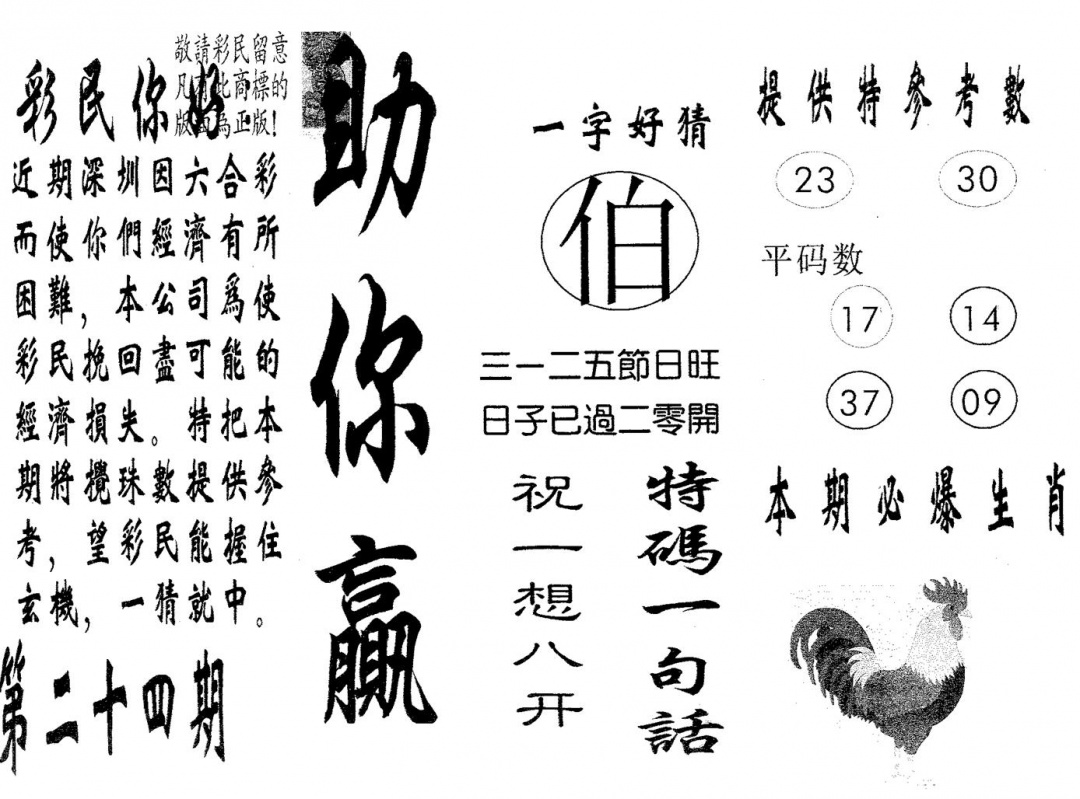 敬請彩民留意
凡有此商標的
版面為正版！
彩民你好
近期深圳因六合彩
而使你們經濟有所
困難，本公司爲使
彩民挽回盡可能的
經濟損失。特把本
期將攪珠數提供參
考，望彩民能握住
玄機，一猜就中。
第二十四期
助你贏
一字好猜
伯
三一二五節日旺
日子已過二零開
特碼一句話
祝一想八开
提供特參考數
23 30
平码数
17 14
37 09
本期必爆生肖